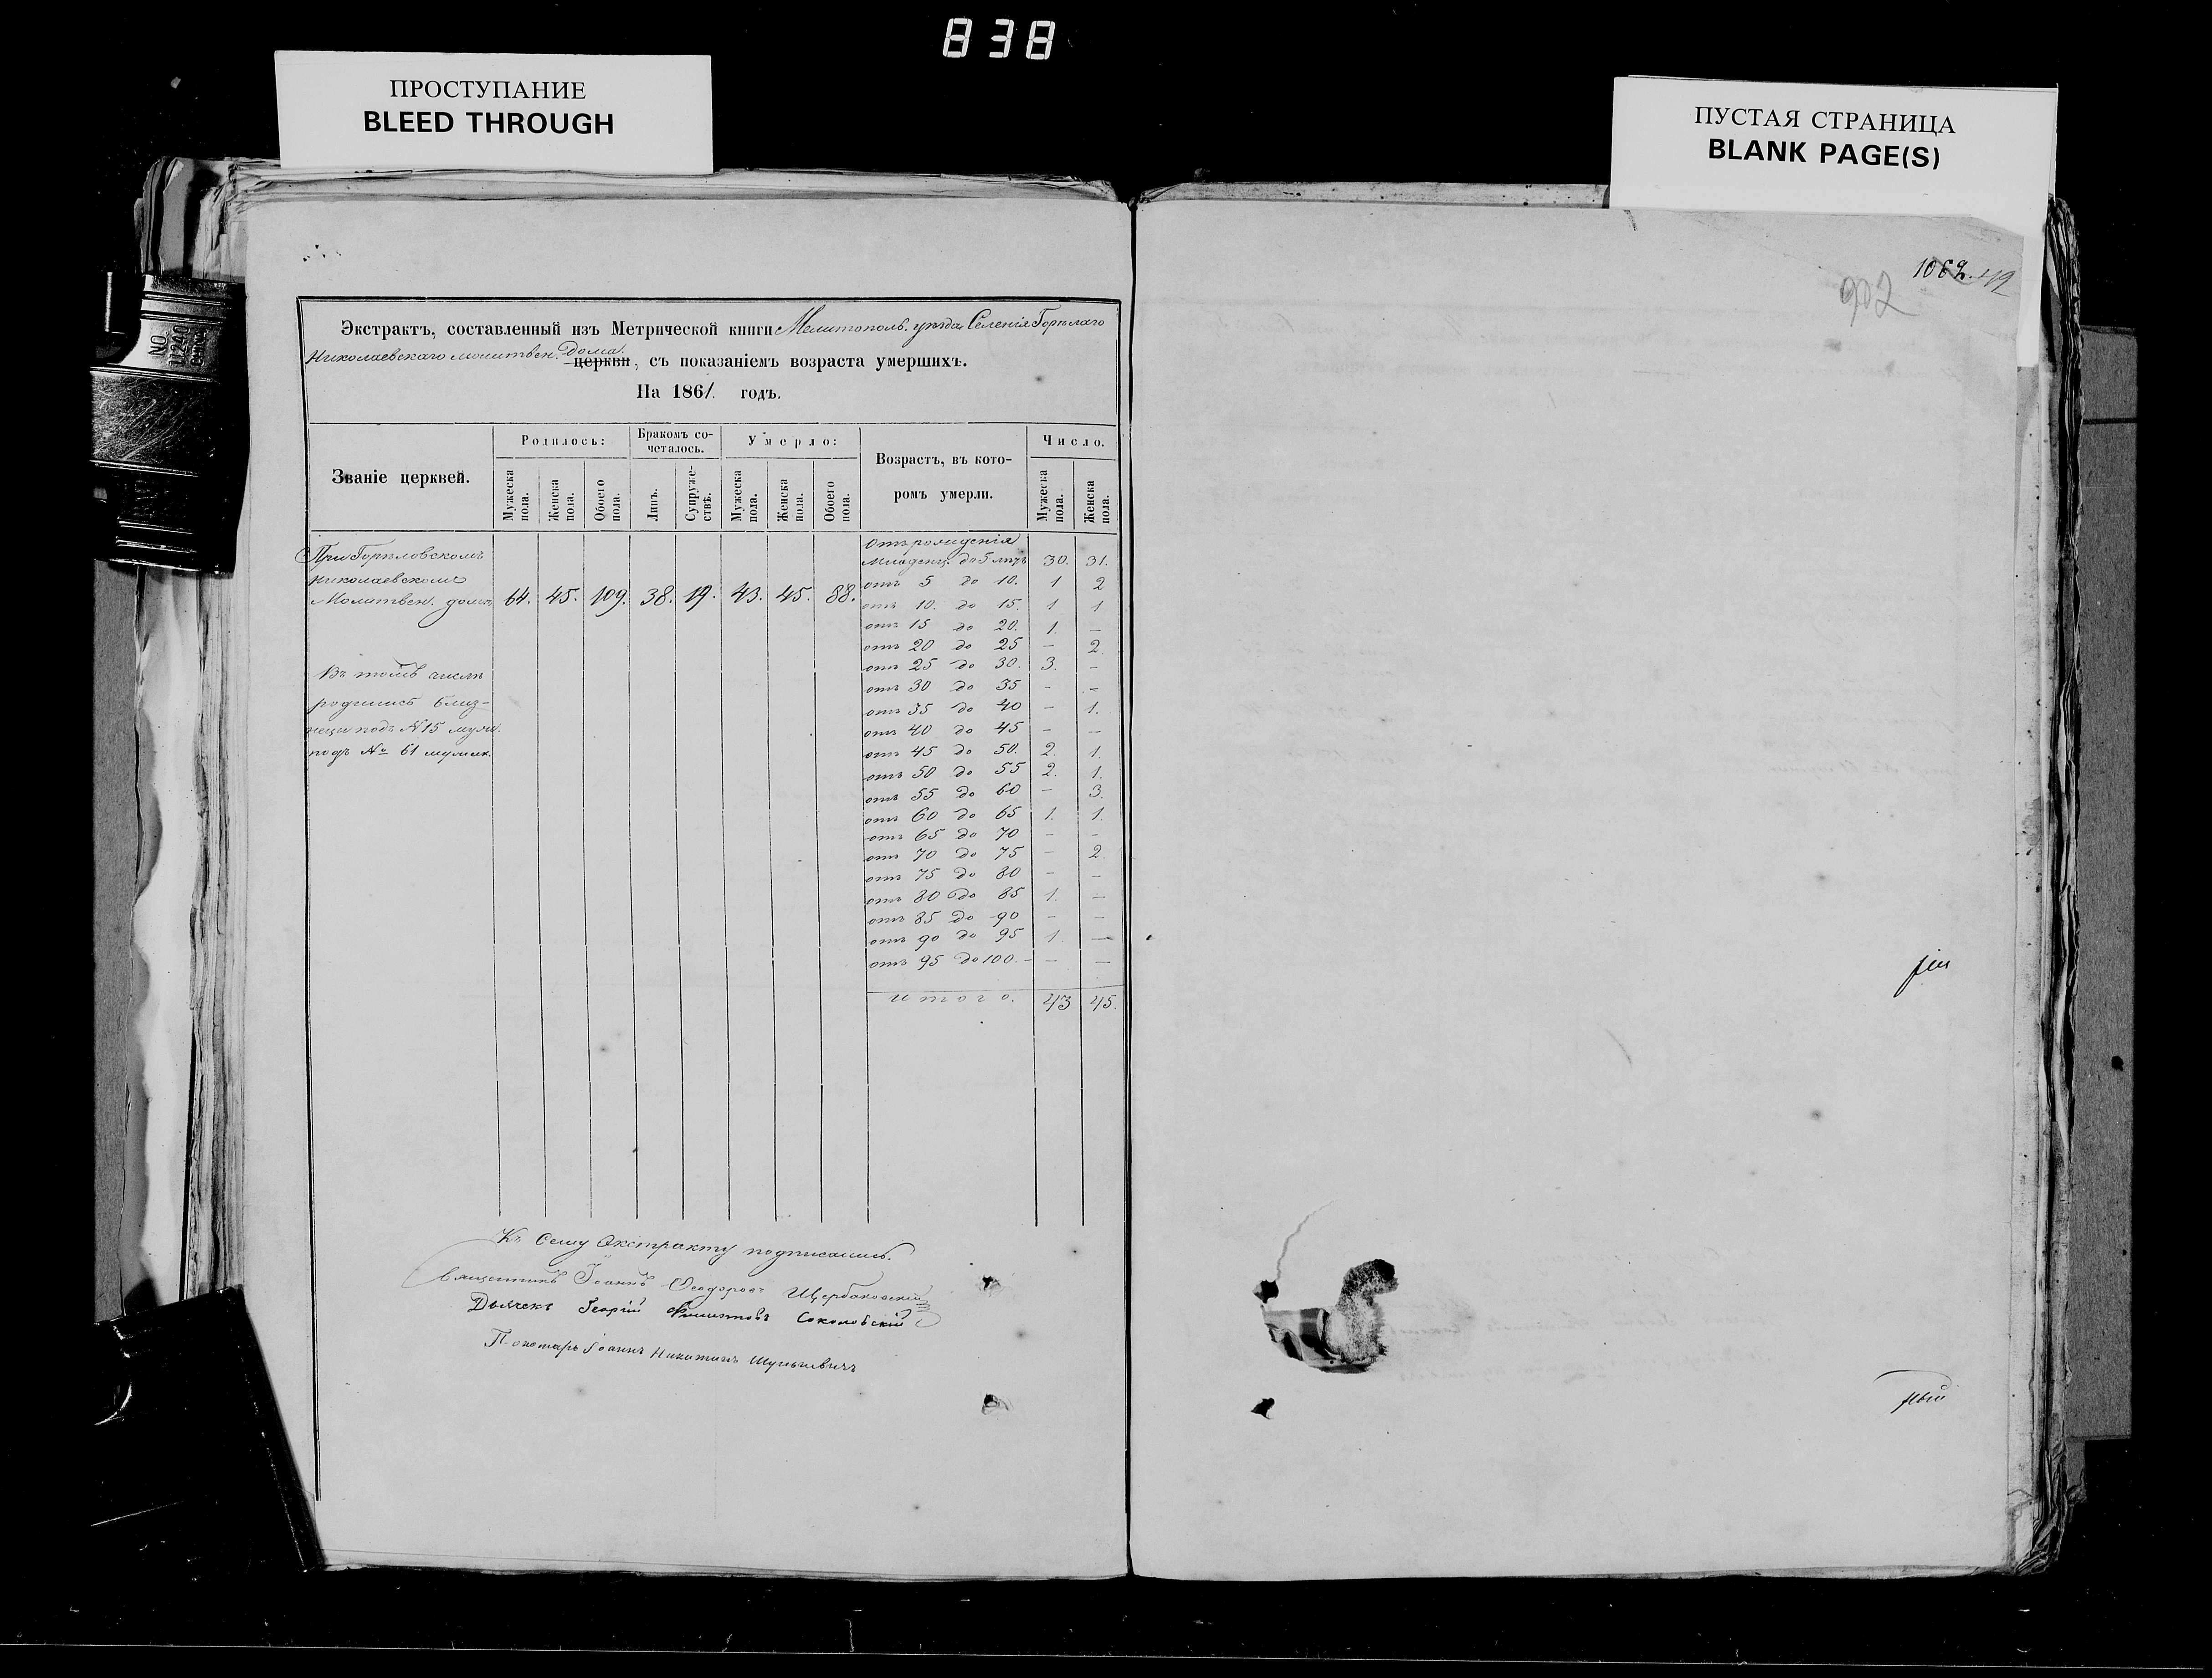 838
ПРОСТУПАНИЕ
BLEED THROUGH
ПУСТАЯ СТРАНИЦА
BLANK PAGE(S)
1062.
902
Экстрактъ, составленный изъ Метрической книги Мелитополь. уѣзда Селенія Горѣлаго
Николаевскаго молитвен. Дома.
церкви, съ показаніемъ возраста умершихъ.
На 1861. годъ.
Званіе церквей.
Родилось:
Мужеска пола.
Женска пола.
Обоего пола.
Бракомъ сочеталось.
Лицъ.
Супружествъ.
Умерло:
Мужеска пола.
Женска пола.
Обоего пола.
Возрастъ, въ кото-
ромъ умерли.
Число.
Мужеска пола.
Женска пола.
При Горѣловскомъ
Николаевскомъ
Молитвен. домѣ 64. 45. 109. 38. 19. 43. 45. 88.
Въ томъ числѣ
родились близ-
нецы подъ N 15 муж.
подъ № 61 мужск.
Отъ рожденія
Младенц. до 5 лѣтъ 30. 31.
отъ 5 до 10. 1 2
отъ 10. до 15. 1 1
отъ 15 до 20. 1. —
отъ 20 до 25 — 2.
отъ 25 до 30. 3. —
отъ 30 до 35 — —
отъ 35 до 40 — 1.
отъ 40 до 45 — —
отъ 45 до 50. 2. 1.
отъ 50 до 55 2. 1.
отъ 55 до 60 — 3.
отъ 60 до 65 1. 1.
отъ 65 до 70 — —
отъ 70 до 75 — 2.
отъ 75 до 80 — —
отъ 80 до 85 1. —
отъ 85 до 90 — —
отъ 90 до 95 1. —
отъ 95 до 100. — —
Итого. 43 45.
Къ сему Экстракту подписались.
Священникъ Іоаннъ Ѳеодоровъ Щербаковскій
Дьячекъ Георгій Филиповъ Соколовскій
Пономарь Іоаннъ Никитинъ
ный